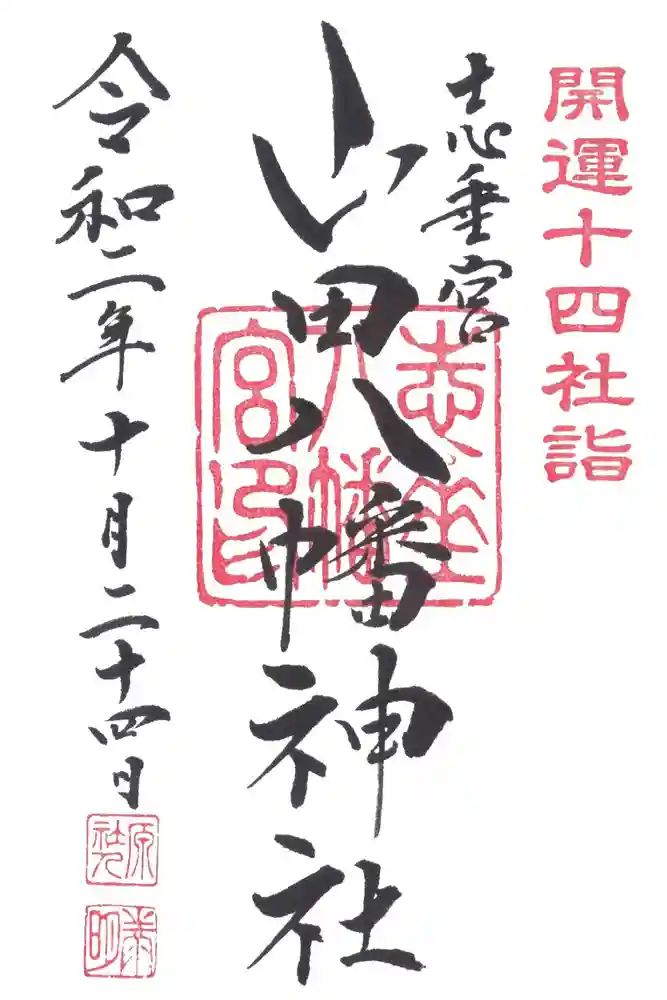 開運十四社詣
志垂宮
山田八幡神社
志垂八幡宮印
令和二年十月二十四日